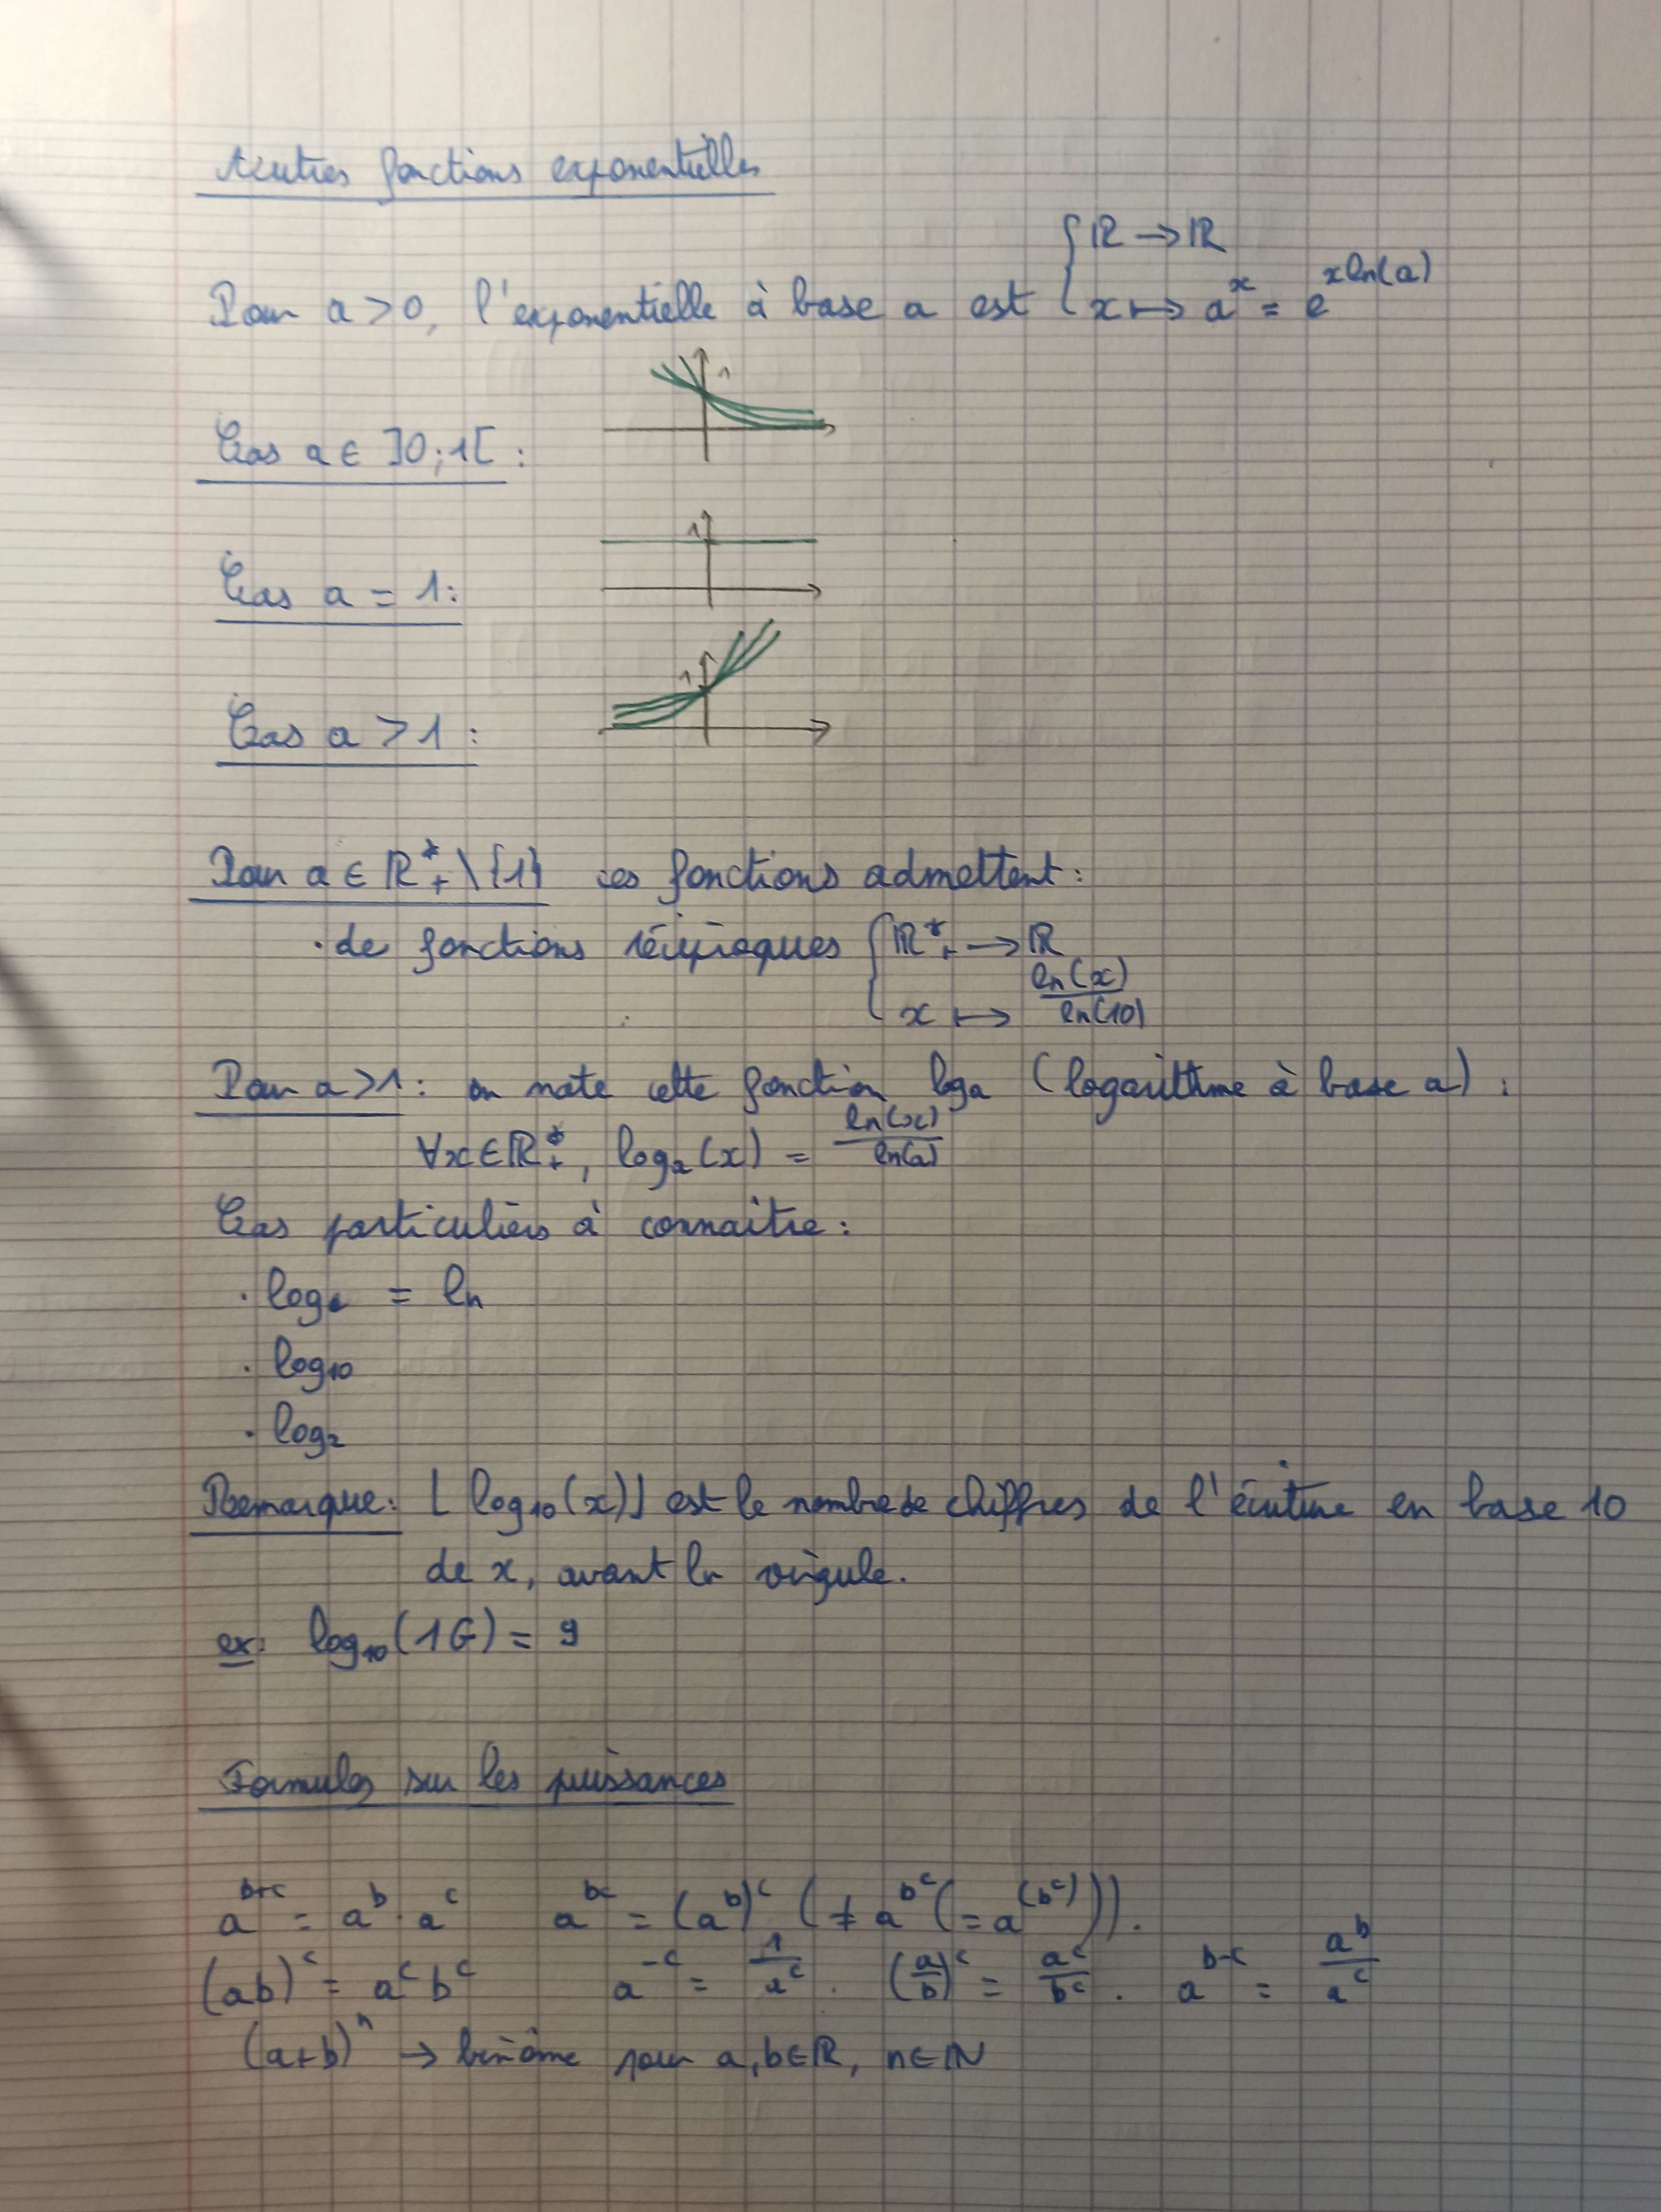 Autres fonctions exponentielles
Pour a > 0, l'exponentielle à base a est { ℝ → ℝ
x ↦ a^x = e^{x ln(a)}
1
Cas a ∈ ]0;1[ :
1
Cas a = 1:
1
Cas a > 1 :
Pour a ∈ ℝ*₊ \ {1} ces fonctions admettent :
· de fonctions réciproques { ℝ*₊ → ℝ
x ↦ ln(x)/ln(10)
Pour a > 1 : on note cette fonction logₐ (logarithme à base a) :
∀x ∈ ℝ*₊, logₐ(x) = ln(x)/ln(a)
Cas particuliers à connaitre :
· logₑ = ln
· log₁₀
· log₂
Remarque: ⌊log₁₀(x)⌋ est le nombre de chiffres de l'écriture en base 10
de x, avant la virgule.
ex: log₁₀(1G) = 9
Formules sur les puissances
a^{b+c} = a^b · a^c a^{bc} = (a^b)^c (≠ a^{b^c} (= a^{(b^c)})).
(ab)^c = a^c b^c a^{-c} = 1/a^c . (a/b)^c = a^c/b^c . a^{b-c} = a^b/a^c
(a+b)^n → binôme pour a,b ∈ ℝ, n ∈ ℕ